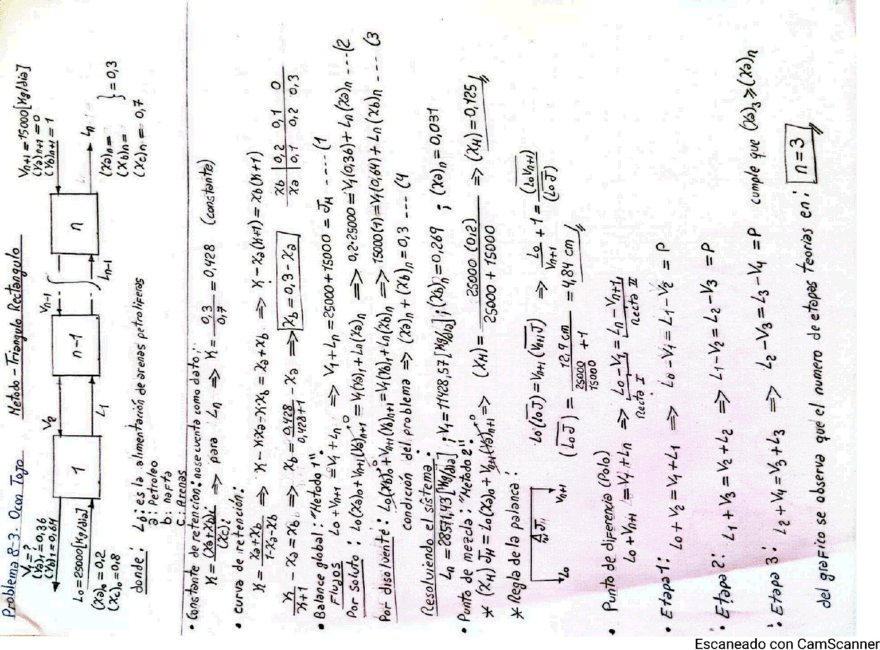 Problema 8-3. Ocon Tojo   Metodo - Triangulo Rectangulo
V₁ = ?
(Ya)₁ = 0,36
(Yb)₁ = 0,64
V₂
Vn-1
Vn+1 = 15000 [Kg/dia]
(Ya)n+1 = 0
(Yb)n+1 = 1
1
n-1
n
L₀ = 25000 [Kg/dia]
(Xa)₀ = 0,2
(Xc)₀ = 0,8
L₁
Ln-1
Ln
(Xa)n =
(Xb)n = } = 0,3
(Xc)n = 0,7
donde : L₀ : es la alimentación de arenas petroliferas
a : Petroleo
b : nafta
c : Arenas
• Constante de retención: nose cuenta como dato;
K = (Xa+Xb)/(Xc) ; ⇒ para Ln ⇒ K = 0,3/0,7 = 0,428 (constante)
• curva de retención:
K = (Xa+Xb)/(1-Xa-Xb) ⇒ K - KXa - KXb = Xa + Xb ⇒ K - Xa(K+1) = Xb(K+1)
K/(K+1) - Xa = Xb ⇒ Xb = 0,428/(0,428+1) - Xa ⇒ Xb = 0,3 - Xa
Xb | 0,2 | 0,1 | 0
Xa | 0,1 | 0,2 | 0,3
• Balance global : "Metodo 1"
Flujos L₀ + Vn+1 = V₁ + Ln ⇒ V₁ + Ln = 25000 + 15000 = JM ---- (1
Por soluto : L₀(Xa)₀ + Vn+1(Ya)n+1⁰ = V₁(Ya)₁ + Ln(Xa)n ⇒ 0,2·25000 = V₁(0,36) + Ln(Xa)n ---- (2
Por disolvente : L₀(Xb)₀⁰ + Vn+1(Yb)n+1 = V₁(Yb)₁ + Ln(Xb)n ⇒ 15000(1) = V₁(0,64) + Ln(Xb)n ---- (3
condición del problema ⇒ (Xa)n + (Xb)n = 0,3 --- (4
Resolviendo el sistema :
Ln = 28571,43 [Kg/dia] ; V₁ = 11428,57 [Kg/dia] ; (Xb)n = 0,269 ; (Xa)n = 0,031
• Punto de mezcla : "Metodo 2"
* (XM) JM = L₀(Xa)₀ + Vn+1(Ya)n+1⁰ ⇒ (XM) = 25000 (0,2)/(25000 + 15000) ⇒ (XM) = 0,125
* Regla de la palanca :
L₀
J
Vn+1
L₀(L₀J) = Vn+1 (Vn+1J) ⇒ L₀/Vn+1 + 1 = (L₀Vn+1)/(L₀J)
(L₀J) = 12,9 cm/(25000/15000 + 1) = 4,84 cm
• Punto de diferencia (Polo)
L₀ + Vn+1 = V₁ + Ln ⇒ L₀ - V₁ = Ln - Vn+1
recta I
recta II
• Etapa 1 : L₀ + V₂ = V₁ + L₁ ⇒ L₀ - V₁ = L₁ - V₂ = P
• Etapa 2 : L₁ + V₃ = V₂ + L₂ ⇒ L₁ - V₂ = L₂ - V₃ = P
• Etapa 3 : L₂ + V₄ = V₃ + L₃ ⇒ L₂ - V₃ = L₃ - V₄ = P cumple que (Xa)₃ ≥ (Xa)n
del grafico se observa que el numero de etapas teorias en : n = 3
Escaneado con CamScanner